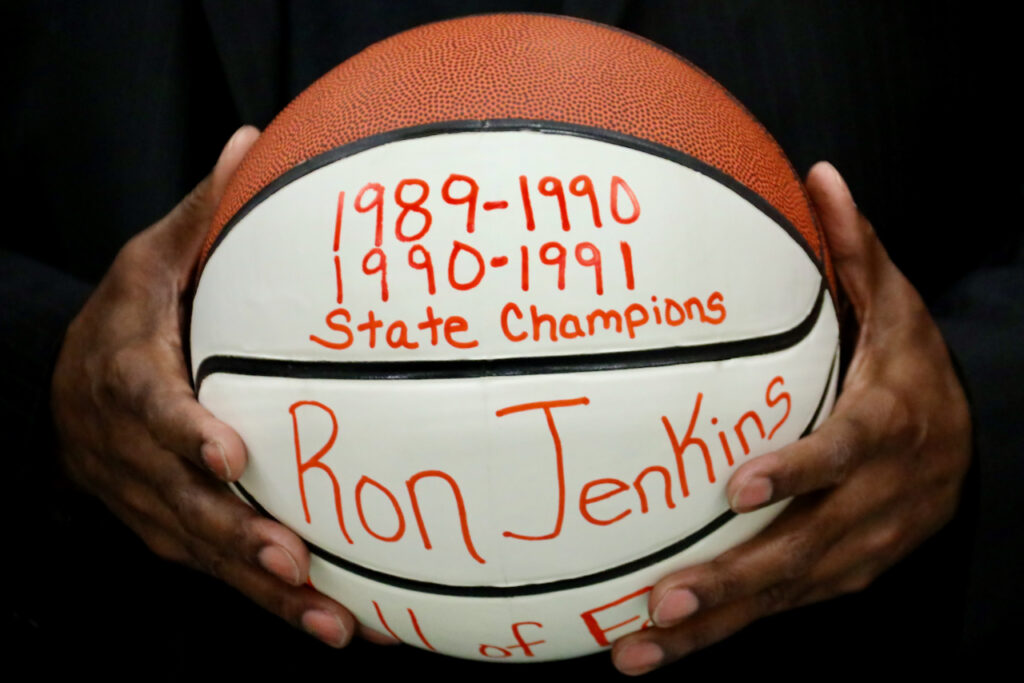 1989-1990
1990-1991
State Champions
Ron Jenkins
of